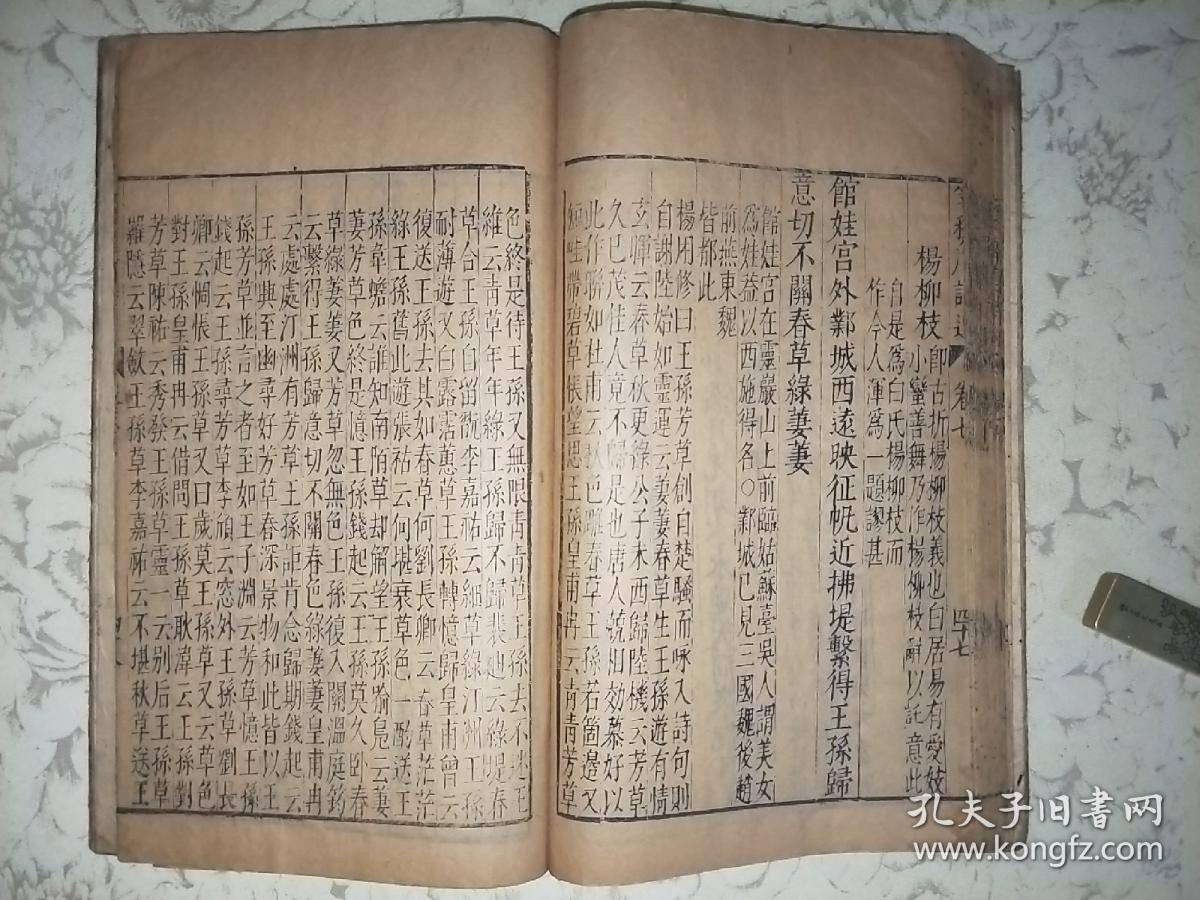 卷七
四十七
楊柳枝 即古折楊柳枝義也白居易有愛妓
小蠻善舞乃作楊柳枝辭以託意此
自是為白氏楊柳枝而
作今人渾為一題謬甚
館娃宮外鄴城西遠映征帆近拂堤繫得王孫歸
意切不關春草綠萋萋
館娃宮在靈巖山上前臨姑蘇臺吳人謂美女
為娃益以西施得名○鄴城已見三國魏後趙
前燕東魏
皆都此
楊用修曰王孫芳草創自楚騷而咏入詩句則
自謝陸始如靈運云萋萋春草生王孫遊有情
玄暉云春草秋更綠公子未西歸陸機云芳草
久已茂佳人竟不歸是也唐人競相効慕好以
此作聯如杜甫云秋色凋春草王孫若箇邊又
短畦帶碧草悵望思王孫皇甫冉云青青芳草
色終是待王孫又無限青青草王孫去不迷王
維云青草年年綠王孫歸不歸裴迪云綠堤春
草合王孫自留翫李嘉祐云細草綠汀洲王孫
耐薄遊又白露霑蕙草王孫轉憶歸皇甫曾云
復送王孫去其如春草何劉長卿云春草茫茫
綠王孫舊此遊張祜云何堪衰草色一酌送王
孫韋蟾云誰知南陌草却解望王孫喻鳧云萋
萋芳草色終是憶王孫錢起云王孫莫久卧春
草綠萋萋又芳草忽無色王孫復入關溫庭筠
云繫得王孫歸意切不關春色綠萋萋皇甫冉
云處處汀洲有芳草王孫詎肯念歸期錢起云
王孫興至幽尋好芳草春深景物和此皆以王
孫芳草並言之者至如王子淵云芳草憶王孫
錢起云王孫尋芳草李頎云窓外王孫草劉長
卿云惆悵王孫草又曰歲莫王孫草又云草色
對王孫皇甫冉云借問王孫草耿湋云王孫對
芳草陳祐云秀發王孫草靈一云別后王孫草
羅隱云翠斂王孫草李嘉祐云不堪秋草送王
孔夫子旧书网
www.kongfz.com